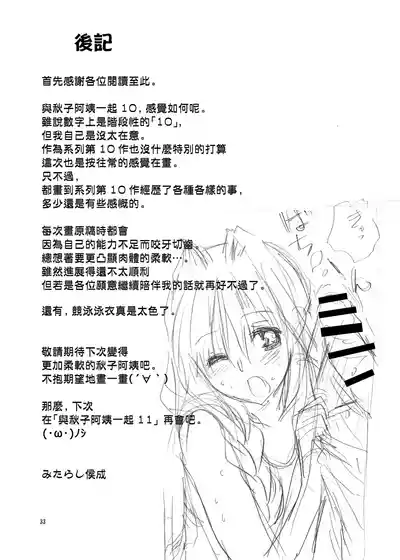 後記
首先感謝各位閱讀至此。
與秋子阿姨一起 10,感覺如何呢。
雖說數字上是階段性的「10」,
但我自己是沒太在意。
作為系列第 10 作也沒什麼特別的打算
這次也是按往常的感覺在畫。
只不過,
都畫到系列第 10 作經歷了各種各樣的事,
多少還是有些感慨的。
每次畫原稿時都會
因為自己的能力不足而咬牙切齒。
總想著要更凸顯肉體的柔軟…。
雖然進展得還不太順利
但若是各位願意繼續陪伴我的話就再好不過了。
還有,競泳泳衣真是太色了。
敬請期待下次變得
更加柔軟的秋子阿姨吧。
不抱期望地畫一畫(´∀`)
那麼,下次
在「與秋子阿姨一起 11」再會吧。
(・ω・)ノシ
みたらし侯成
33